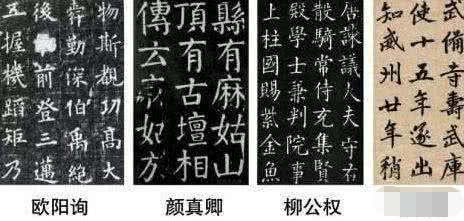 物斯觀功高大
舜勤深伯禹絶
後前登三邁
五握機蹈矩乃
縣有麻姑山
頂有古壇相
傳云麻姑於
諫議大夫守右
散騎常侍充集賢
殿學士兼判院事
上柱國賜紫金魚
武備寺壽武庫
使十五年遂出
知威州廿年稍
欧阳询
颜真卿
柳公权